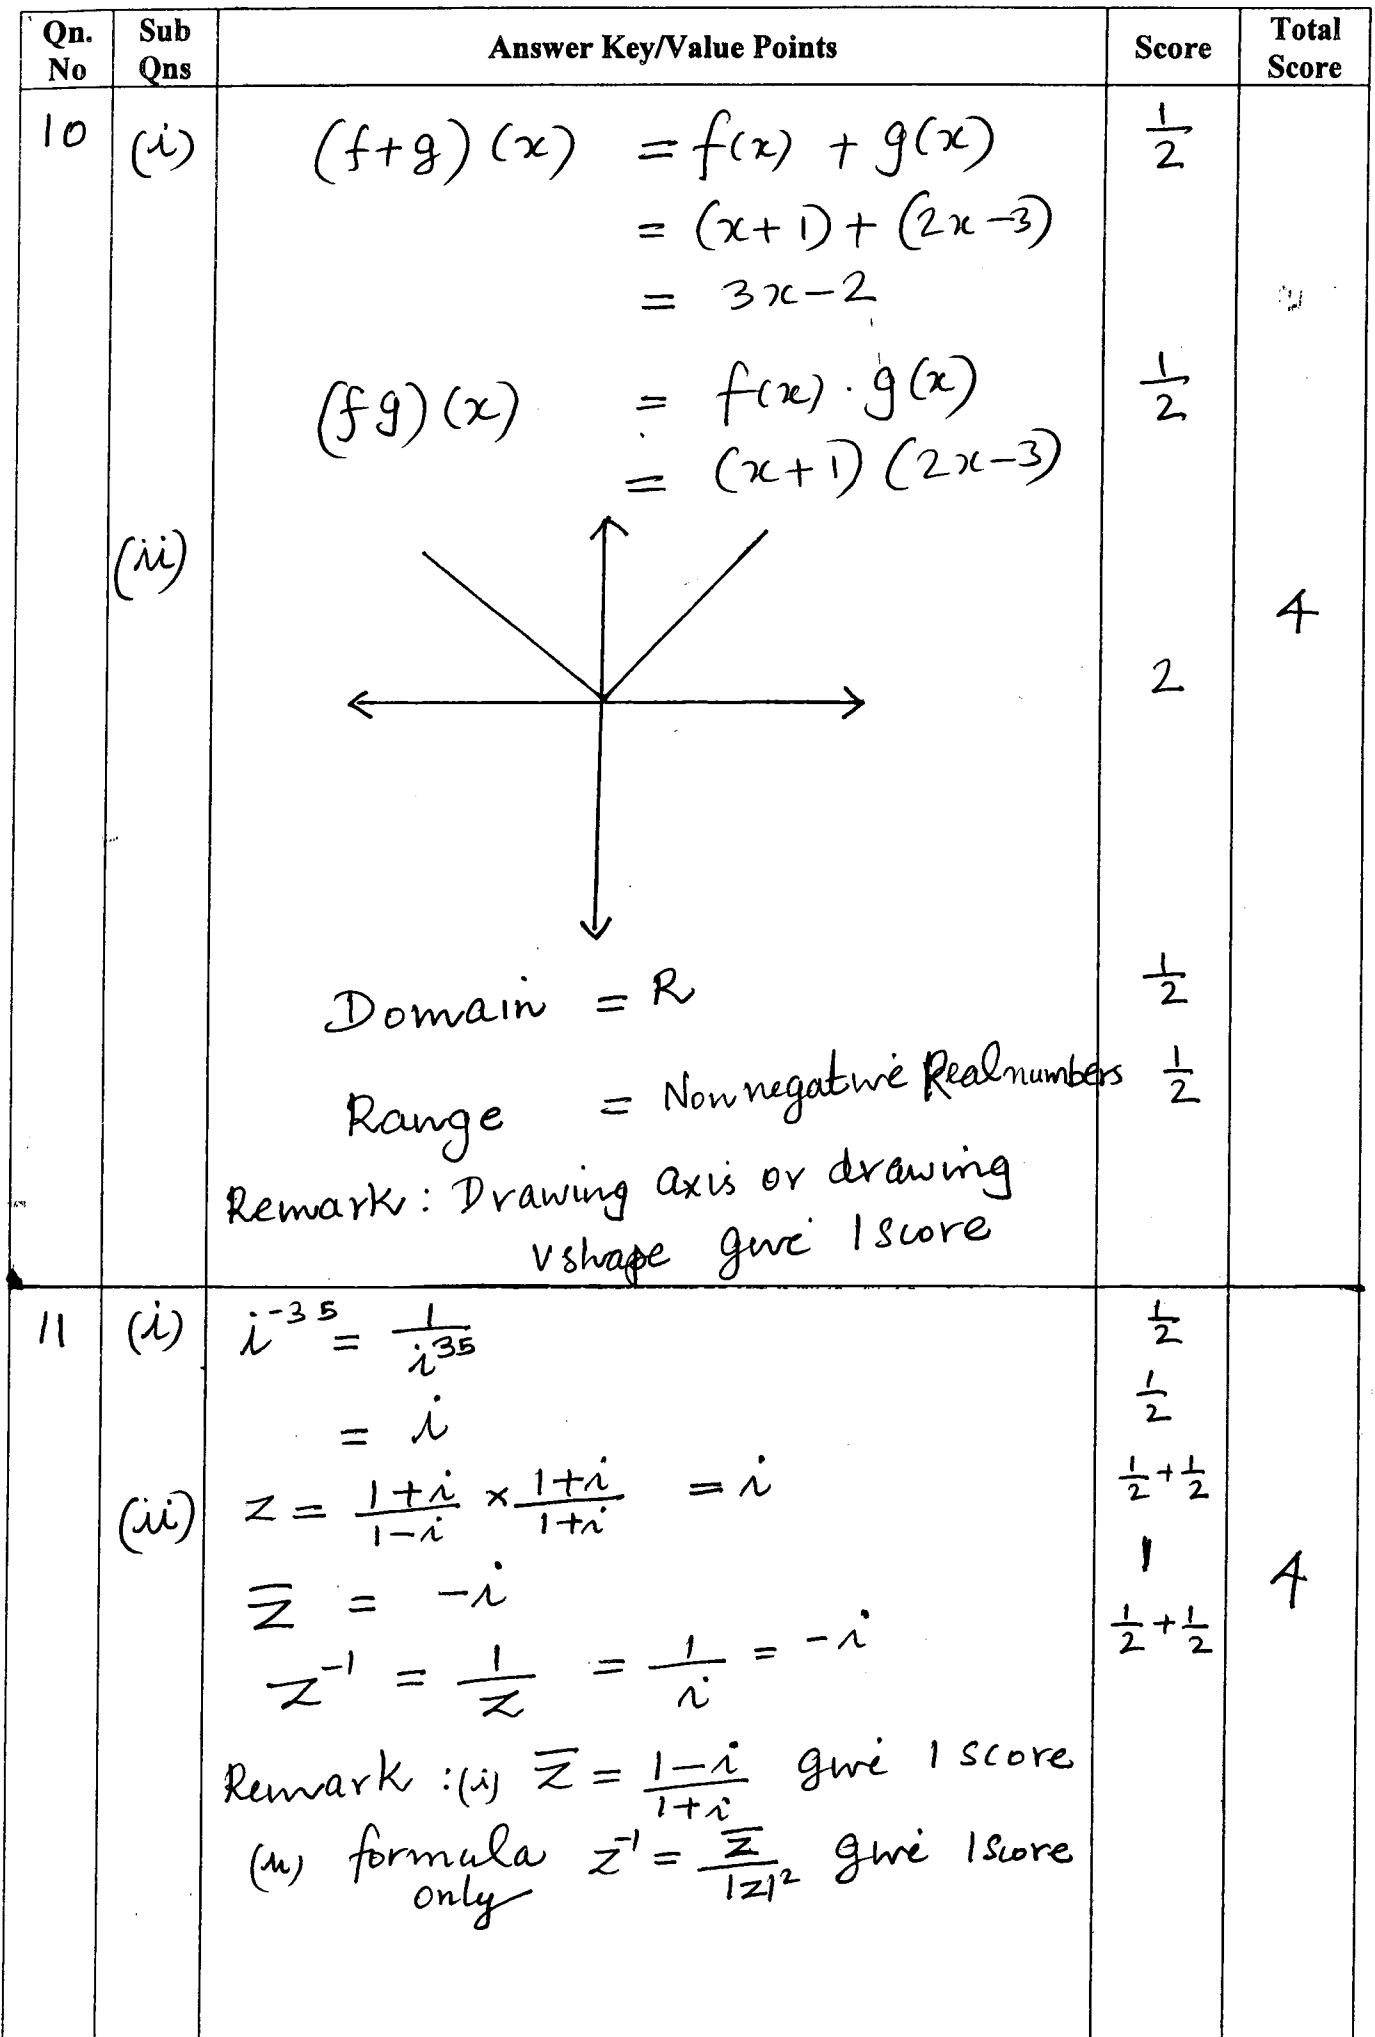 Qn. No | Sub Qns | Answer Key/Value Points | Score | Total Score
10 (i) (f+g)(x) = f(x) + g(x) 1/2
= (x+1) + (2x-3)
= 3x-2
(fg)(x) = f(x) · g(x) 1/2
= (x+1) (2x-3)
(ii)
4
2
Domain = R 1/2
Range = Non negative Real numbers 1/2
Remark : Drawing axis or drawing
v shape give 1 score
11 (i) i^-35 = 1/i^35 1/2
= i 1/2
(ii) z = (1+i)/(1-i) × (1+i)/(1+i) = i 1/2 + 1/2
z̅ = -i 1 4
z^-1 = 1/z = 1/i = -i 1/2 + 1/2
Remark : (i) z̅ = (1-i)/(1+i) give 1 score
(ii) formula only z^-1 = z̅/|z|^2 give 1 score